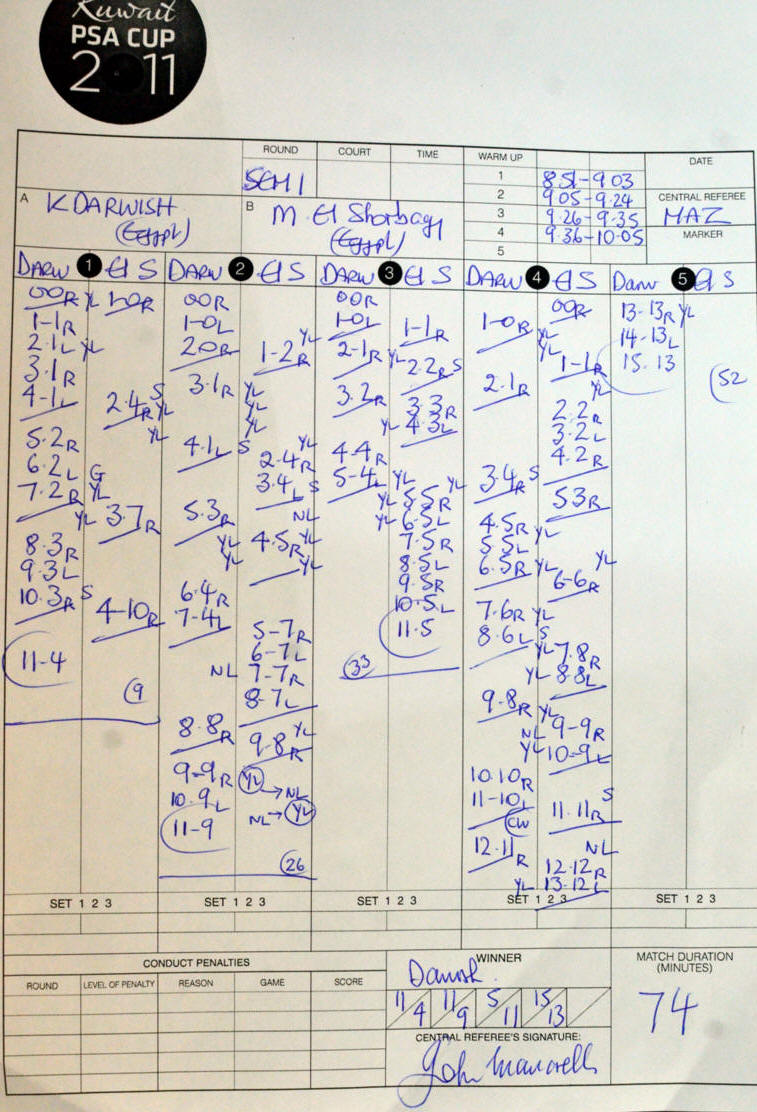 Kuwait
PSA CUP
2011
ROUND COURT TIME WARM UP DATE
SEMI
1 8.51-9.03
2 9.05-9.24
3 9.26-9.35
4 9.36-10.05
5
CENTRAL REFEREE
MAZ
MARKER
A K DARWISH
(Egypt)
B M El Shorbagy
(Egypt)
DARW 1 El S
00R YL 1-0R
1-1R
2-1L YL
3-1R
4-1L
2-4R S YL
YL
5-2R
6-2L G
7-2R YL
YL 3-7R
8-3R
9-3L
10-3R S
4-10R
11-4
9
DARW 2 El S
00R
1-0L
2-0R
1-2R YL
3-1R YL
YL
YL
4-1L S
2-4R YL
3-4L S
NL
5-3R
YL 4-5R YL
YL YL
6-4R
7-4L
5-7R
6-7L
NL 7-7R
8-7L
8-8R
9-8R YL
9-9R YL → NL
10-9L NL → YL
11-9
26
DARW 3 El S
00R
1-0L
1-1R
2-1R YL
2-2R S
3-2R
3-3R
YL 4-3L
4-4R
5-4L YL
YL 5-5R YL
YL 6-5L
7-5R
8-5L
9-5R
10-5L
11-5
33
DARW 4 El S
00R
1-0R YL
YL
1-1R
2-1R YL
2-2R
3-2L
4-2R
3-4R S
53R
4-5R YL
5-5L
6-5R YL YL
6-6R
7-6R YL
8-6L S
YL 7-8R
YL 8-8L
9-8R YL
NL 9-9R
YL 10-9L
10-10R
11-10L
CW
11-11R S
12-11R
NL
12-12R
YL 13-12L
Darw 5 El S
13-13R YL
14-13L
15-13
52
SET 1 2 3 SET 1 2 3 SET 1 2 3 SET 1 2 3 SET 1 2 3
CONDUCT PENALTIES
ROUND LEVEL OF PENALTY REASON GAME SCORE
WINNER
Darwish
11/4 11/9 5/11 15/13
CENTRAL REFEREE'S SIGNATURE:
MATCH DURATION
(MINUTES)
74